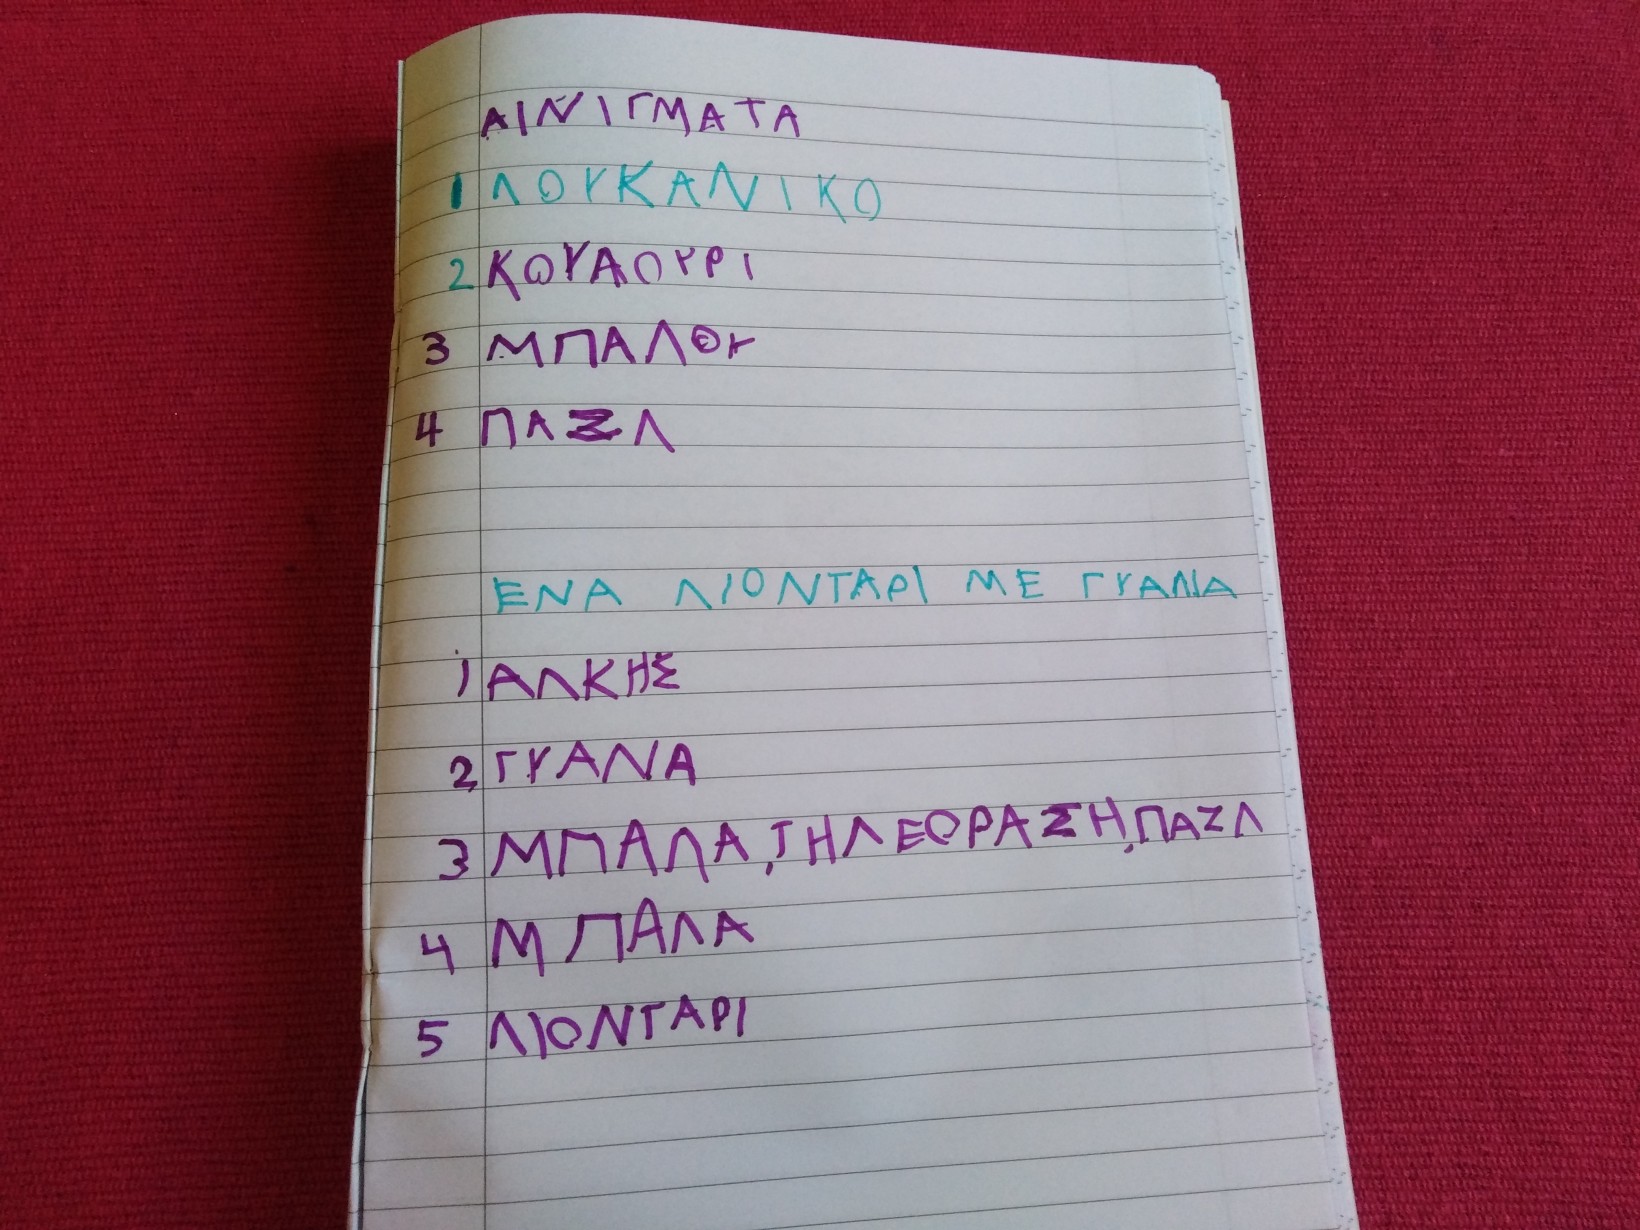 ΑΙΝΙΓΜΑΤΑ
1 ΛΟΥΚΑΝΙΚΟ
2 ΚΟΥΛΟΥΡΙ
3 ΜΠΑΛΟΥ
4 ΠΑΖΛ
ΕΝΑ ΛΙΟΝΤΑΡΙ ΜΕ ΓΥΑΛΙΑ
1 ΑΛΚΗΣ
2 ΓΥΑΛΙΑ
3 ΜΠΑΛΑ, ΤΗΛΕΟΡΑΣΗ, ΠΑΖΛ
4 ΜΠΑΛΑ
5 ΛΙΟΝΤΑΡΙ